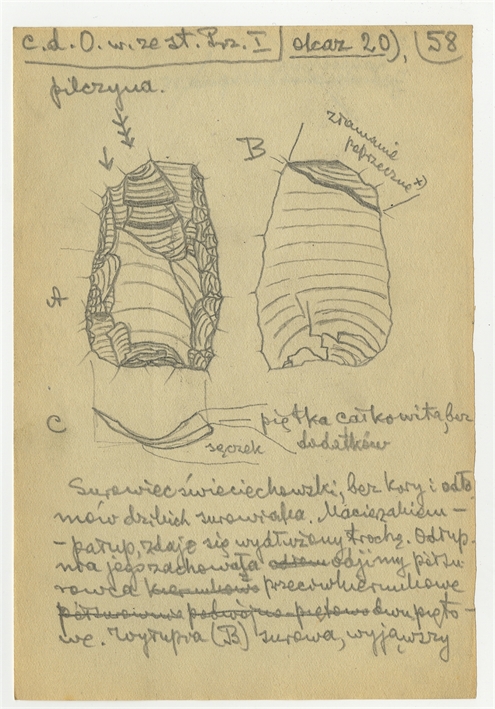 c.d. O. w. ze st. Prz. I okaz 20), 58
pilczyna.
B
złamanie
poprzeczne x)
A
C
piętka całkowita, bez
dodatków
sęczek
Surowiec świeciechowski, bez kory i odło
mów dzikich surowiaka. Macierzakiem -
- patup, zdaje się wydłużony trochę. Odłup
nia jego zachowała odjimy
rowca przeciwkierunkowe
dwupięto-
we. Wyłupnia (B) surowa, wyjąwszy